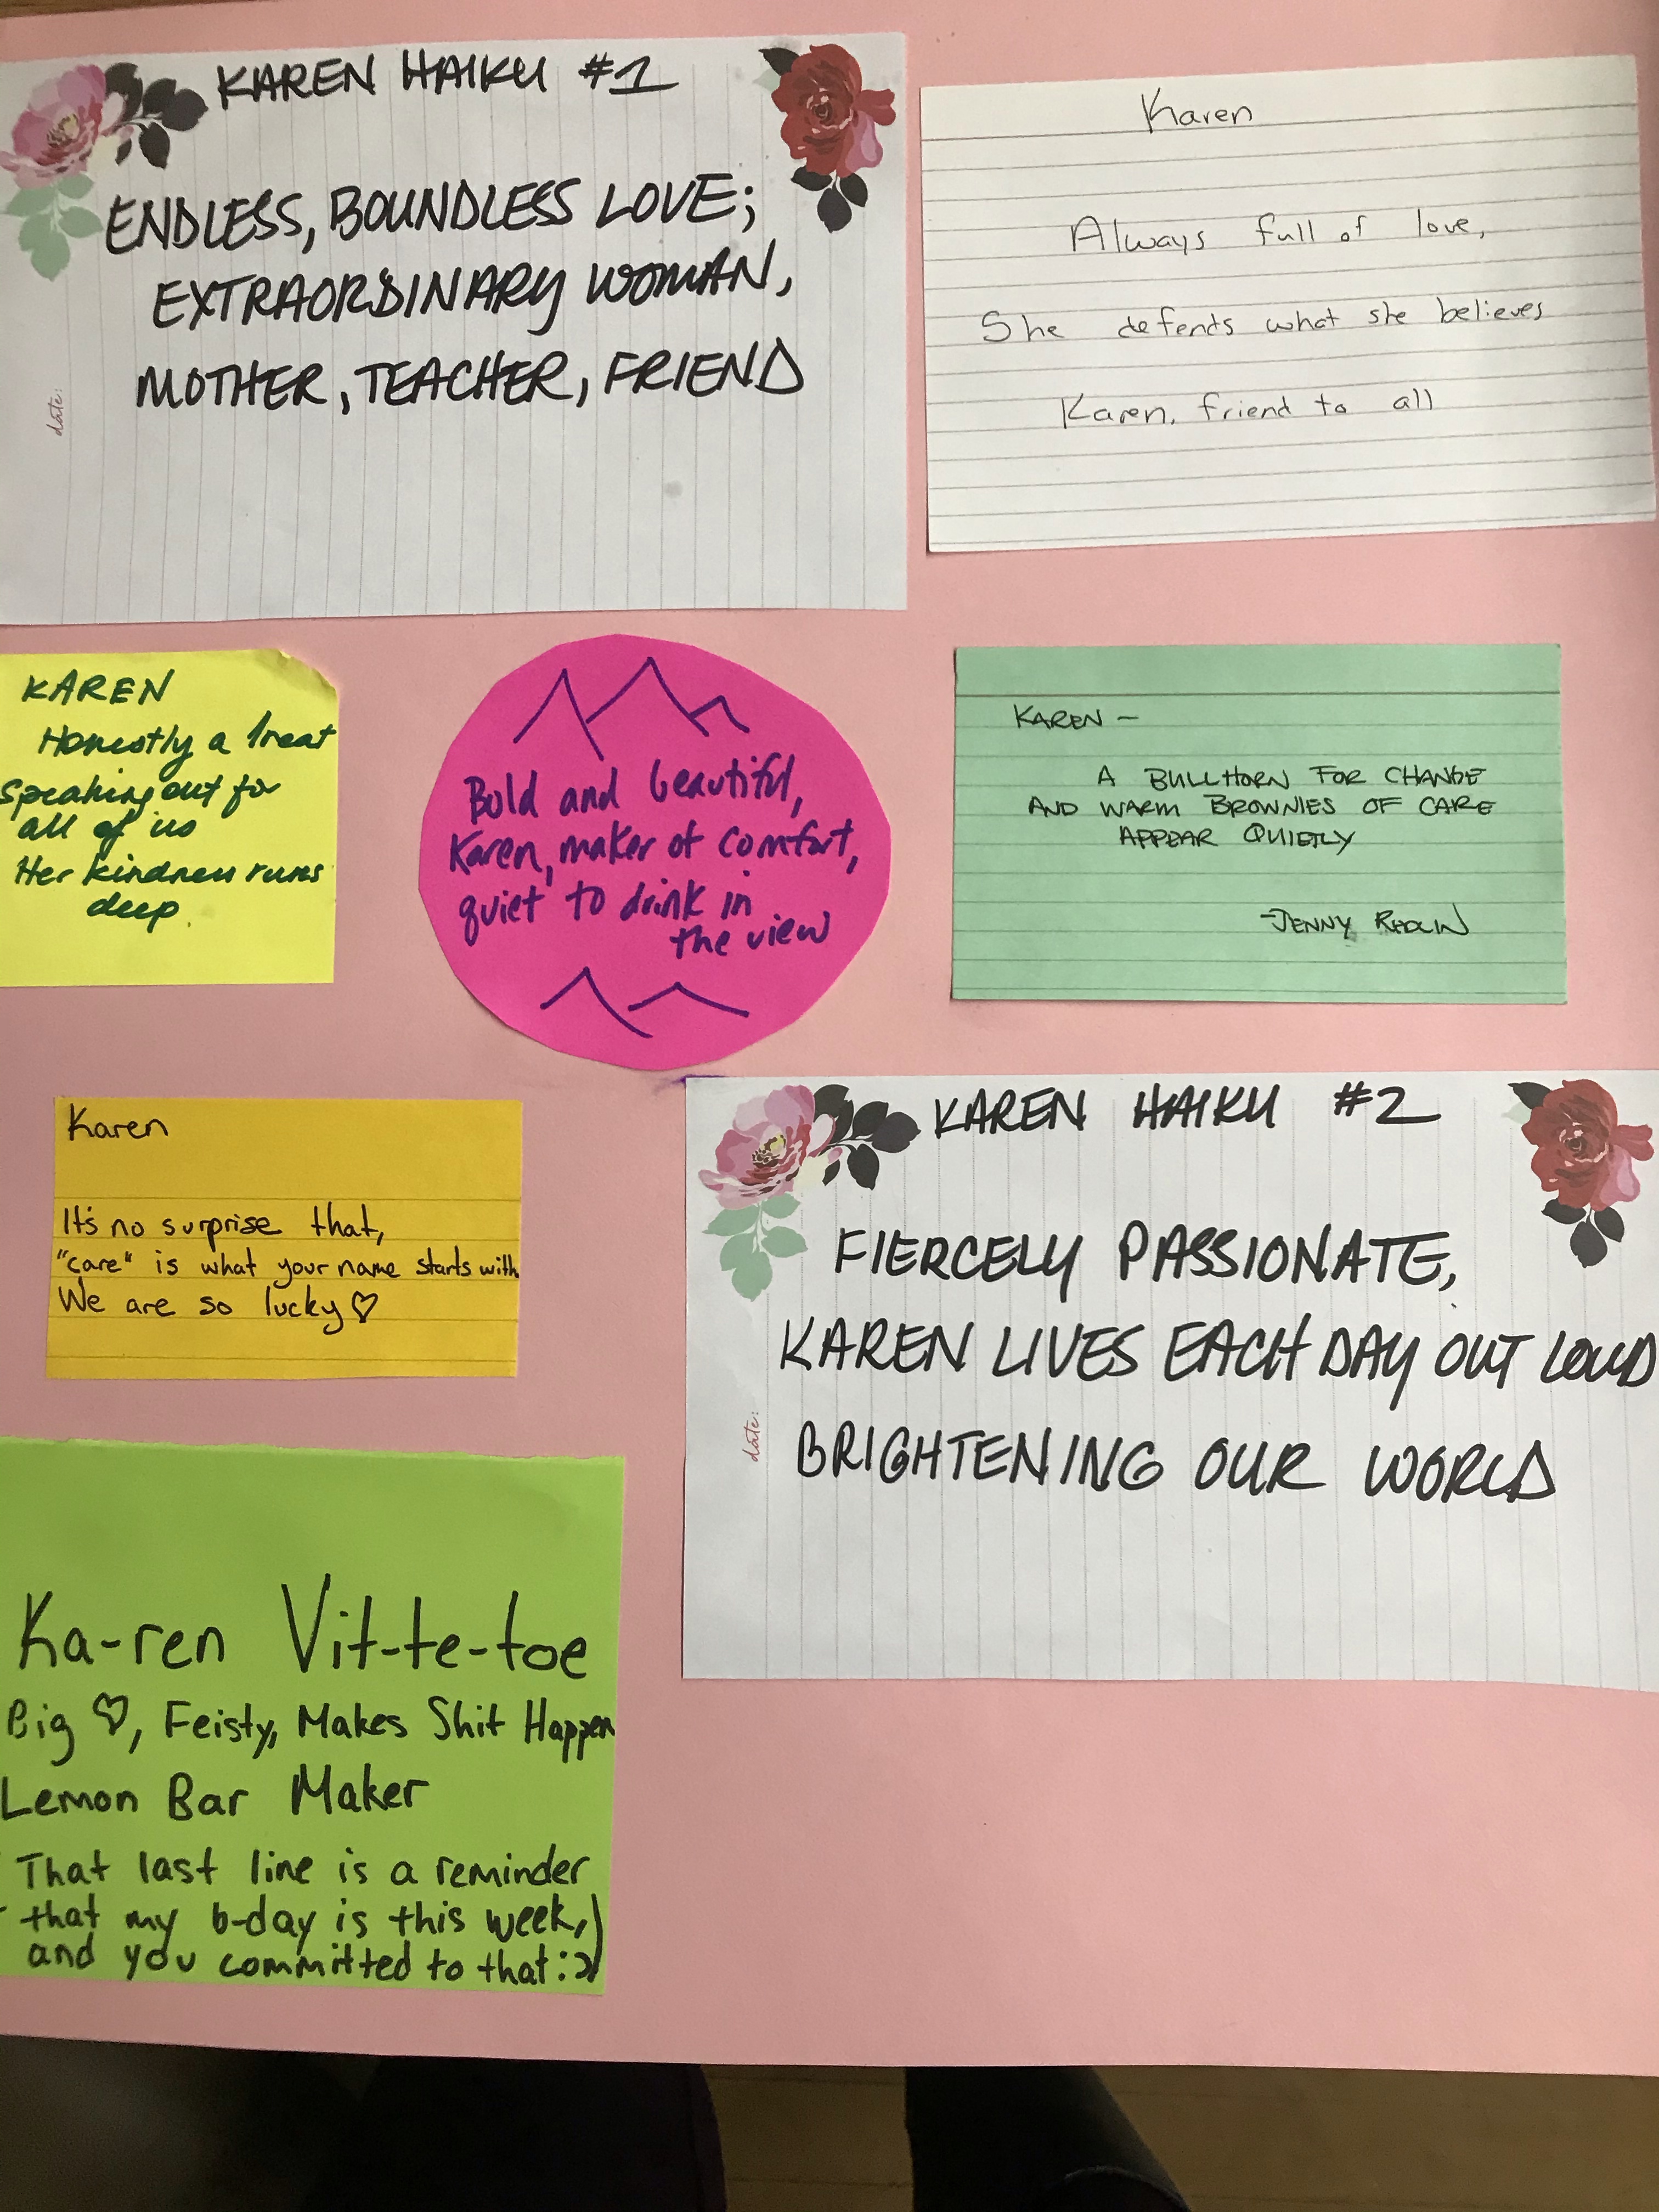 KAREN HAIKU #1
ENDLESS, BOUNDLESS LOVE;
EXTRAORDINARY WOMAN,
MOTHER, TEACHER, FRIEND
date:
Karen
Always full of love,
She defends what she believes
Karen, friend to all
KAREN
Honestly a treat
Speaking out for
all of us
Her kindness runs
deep.
Bold and beautiful,
Karen, maker of comfort,
quiet to drink in
the view
KAREN —
A BULLHORN FOR CHANGE
AND WARM BROWNIES OF CARE
APPEAR QUIETLY
-JENNY
Karen
It's no surprise that,
"care" is what your name starts with
We are so lucky♡
KAREN HAIKU #2
FIERCELY PASSIONATE,
KAREN LIVES EACH DAY OUT LOUD
BRIGHTENING OUR WORLD
date:
Ka-ren Vit-te-toe
Big ♡, Feisty, Makes Shit Happen
Lemon Bar Maker
That last line is a reminder
that my b-day is this week,
and you committed to that :)